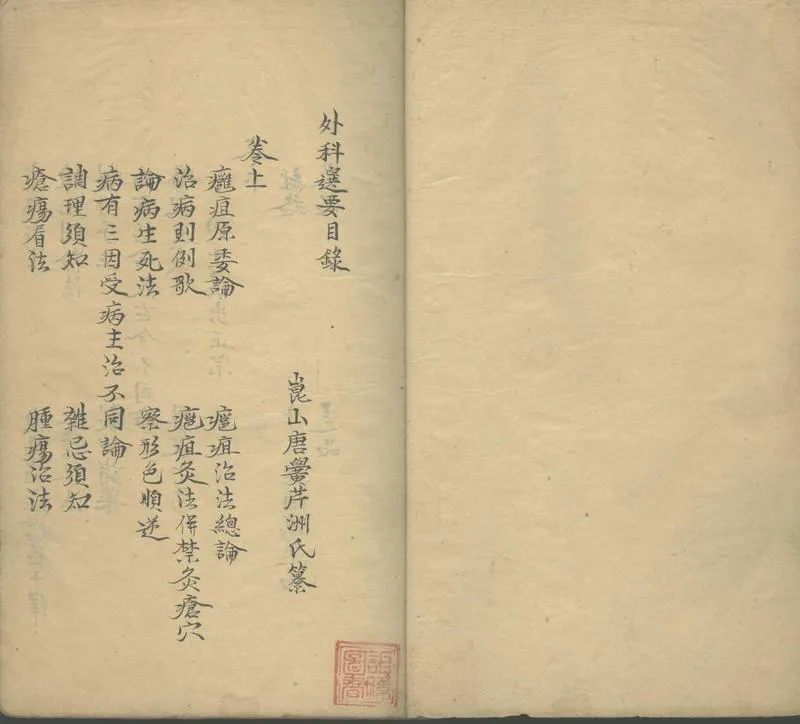 外科選要目錄
崑山唐黌芹洲氏纂
卷上
癰疽原委論　癰疽治法總論
治病則例歌　癰疽灸法併禁灸瘡穴
論病生死法　察形色順逆
病有三因受病主治不同論
調理須知　雜忌須知
瘡瘍看法　腫瘍治法
圖書